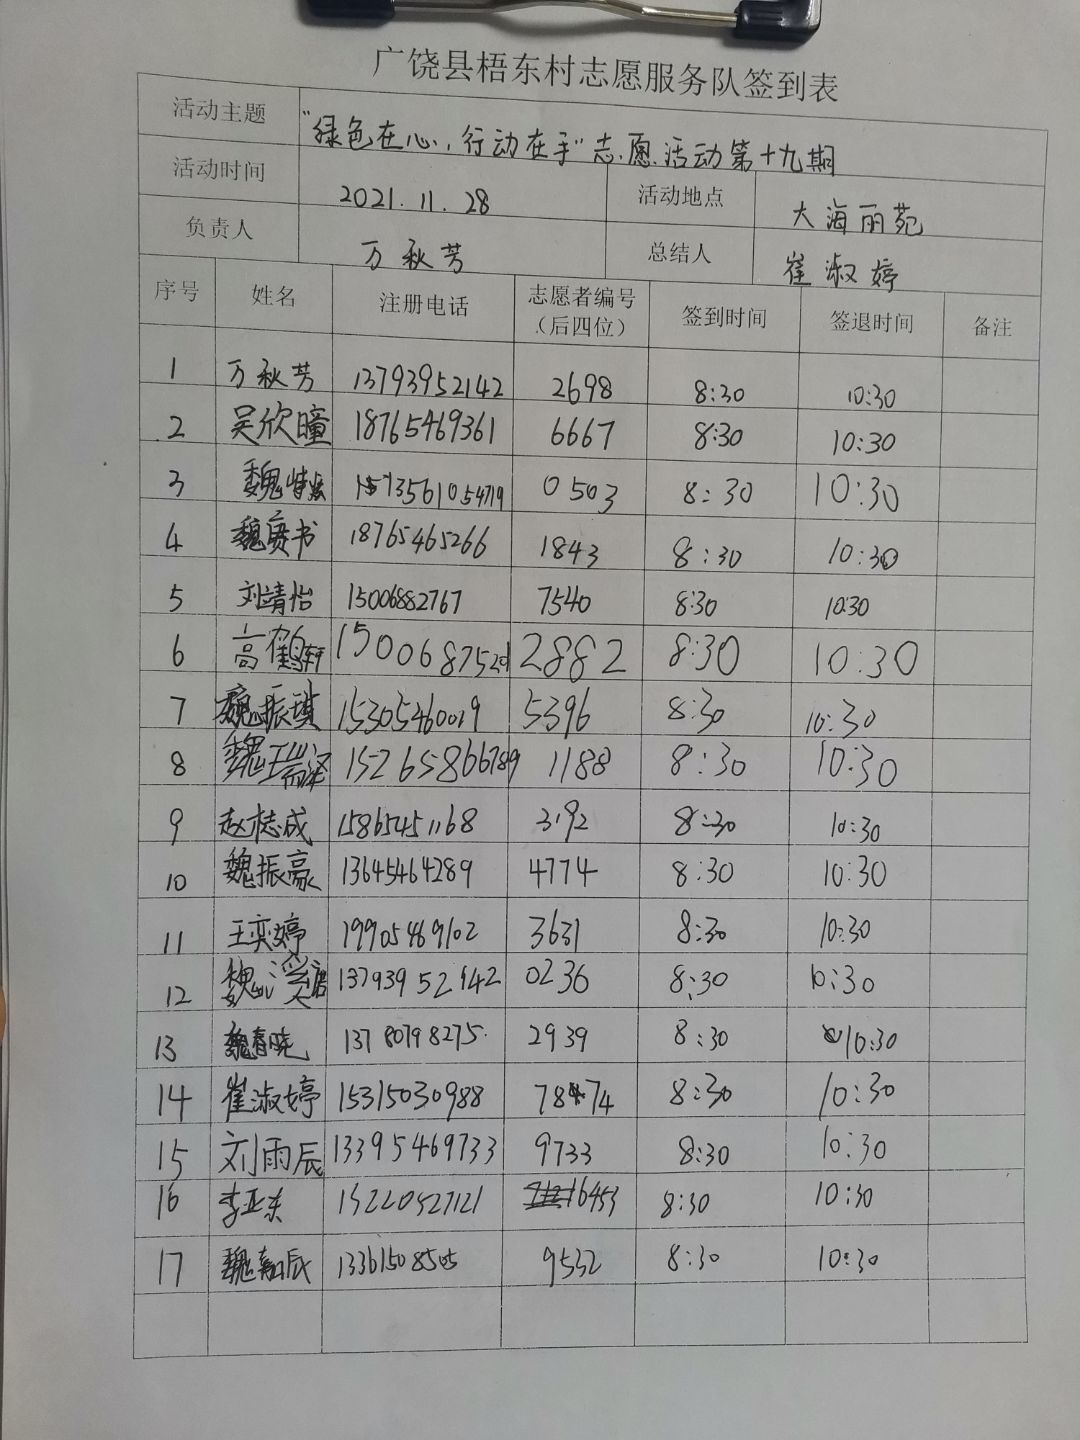 广饶县梧东村志愿服务队签到表
活动主题 "绿色在心,行动在手"志愿活动第十九期
活动时间 2021.11.28 活动地点 大海丽苑
负责人 万秋芳 总结人 崔淑婷
序号 姓名 注册电话 志愿者编号(后四位) 签到时间 签退时间 备注
1 万秋芳 13793952142 2698 8:30 10:30
2 吴欣瞳 18765469361 6667 8:30 10:30
3 魏 0503 8:30 10:30
4 魏赓书 18765465266 1843 8:30 10:30
5 刘靖怡 15006882767 7540 8:30 10:30
6 高鹤轩 2882 8:30 10:30
7 魏振琪 15305460019 5396 8:30 10:30
8 魏瑞泽 15265866789 1188 8:30 10:30
9 赵梽成 15865451168 3192 8:30 10:30
10 魏振豪 13645464289 4774 8:30 10:30
11 王奕婷 19905469102 3631 8:30 10:30
12 魏溪唐 13793952142 0236 8:30 10:30
13 魏春晓 13780798275 2939 8:30 10:30
14 崔淑婷 15315030988 7874 8:30 10:30
15 刘雨辰 13395469733 9733 8:30 10:30
16 李亚东 15220527121 6453 8:30 10:30
17 魏 辰 13361508505 9532 8:30 10:30